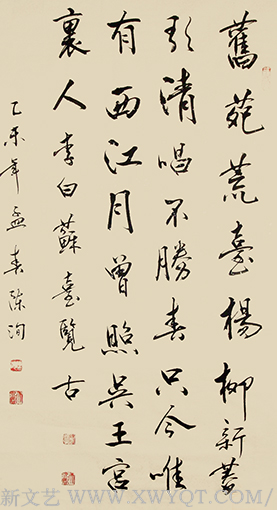 舊苑荒臺楊柳新菱
歌清唱不勝春只今唯
有西江月曾照吳王宮
裏人李白蘇臺覽古
乙未年孟春陳洵
新文艺/WWW.XWYQT.COM/